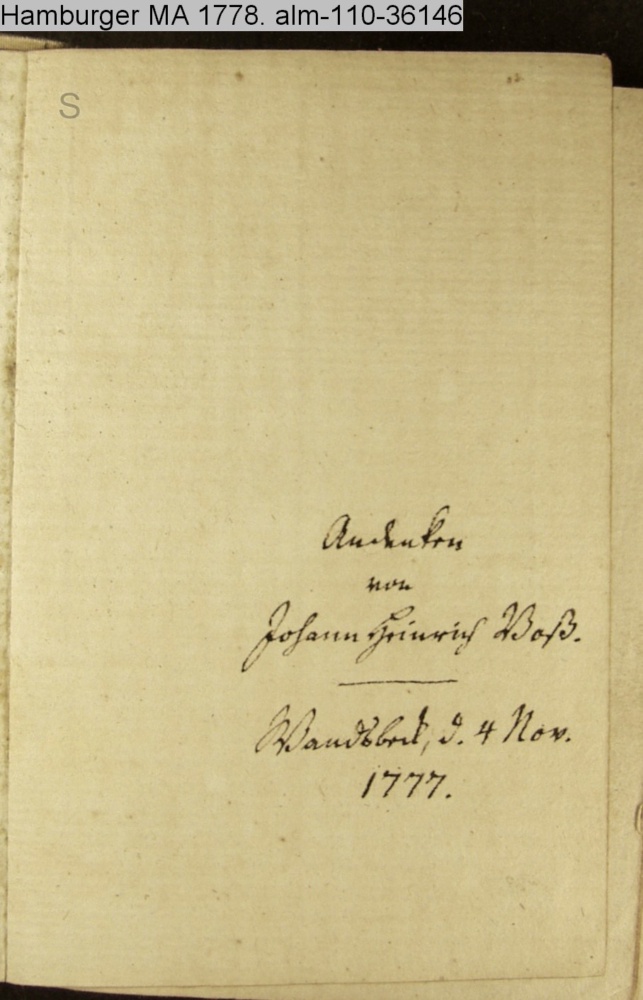 Hamburger MA 1778. alm-110-36146
S
Andenken
von
Johann Heinrich Voß.
Wandsbeck, d. 4 Nov.
1777.